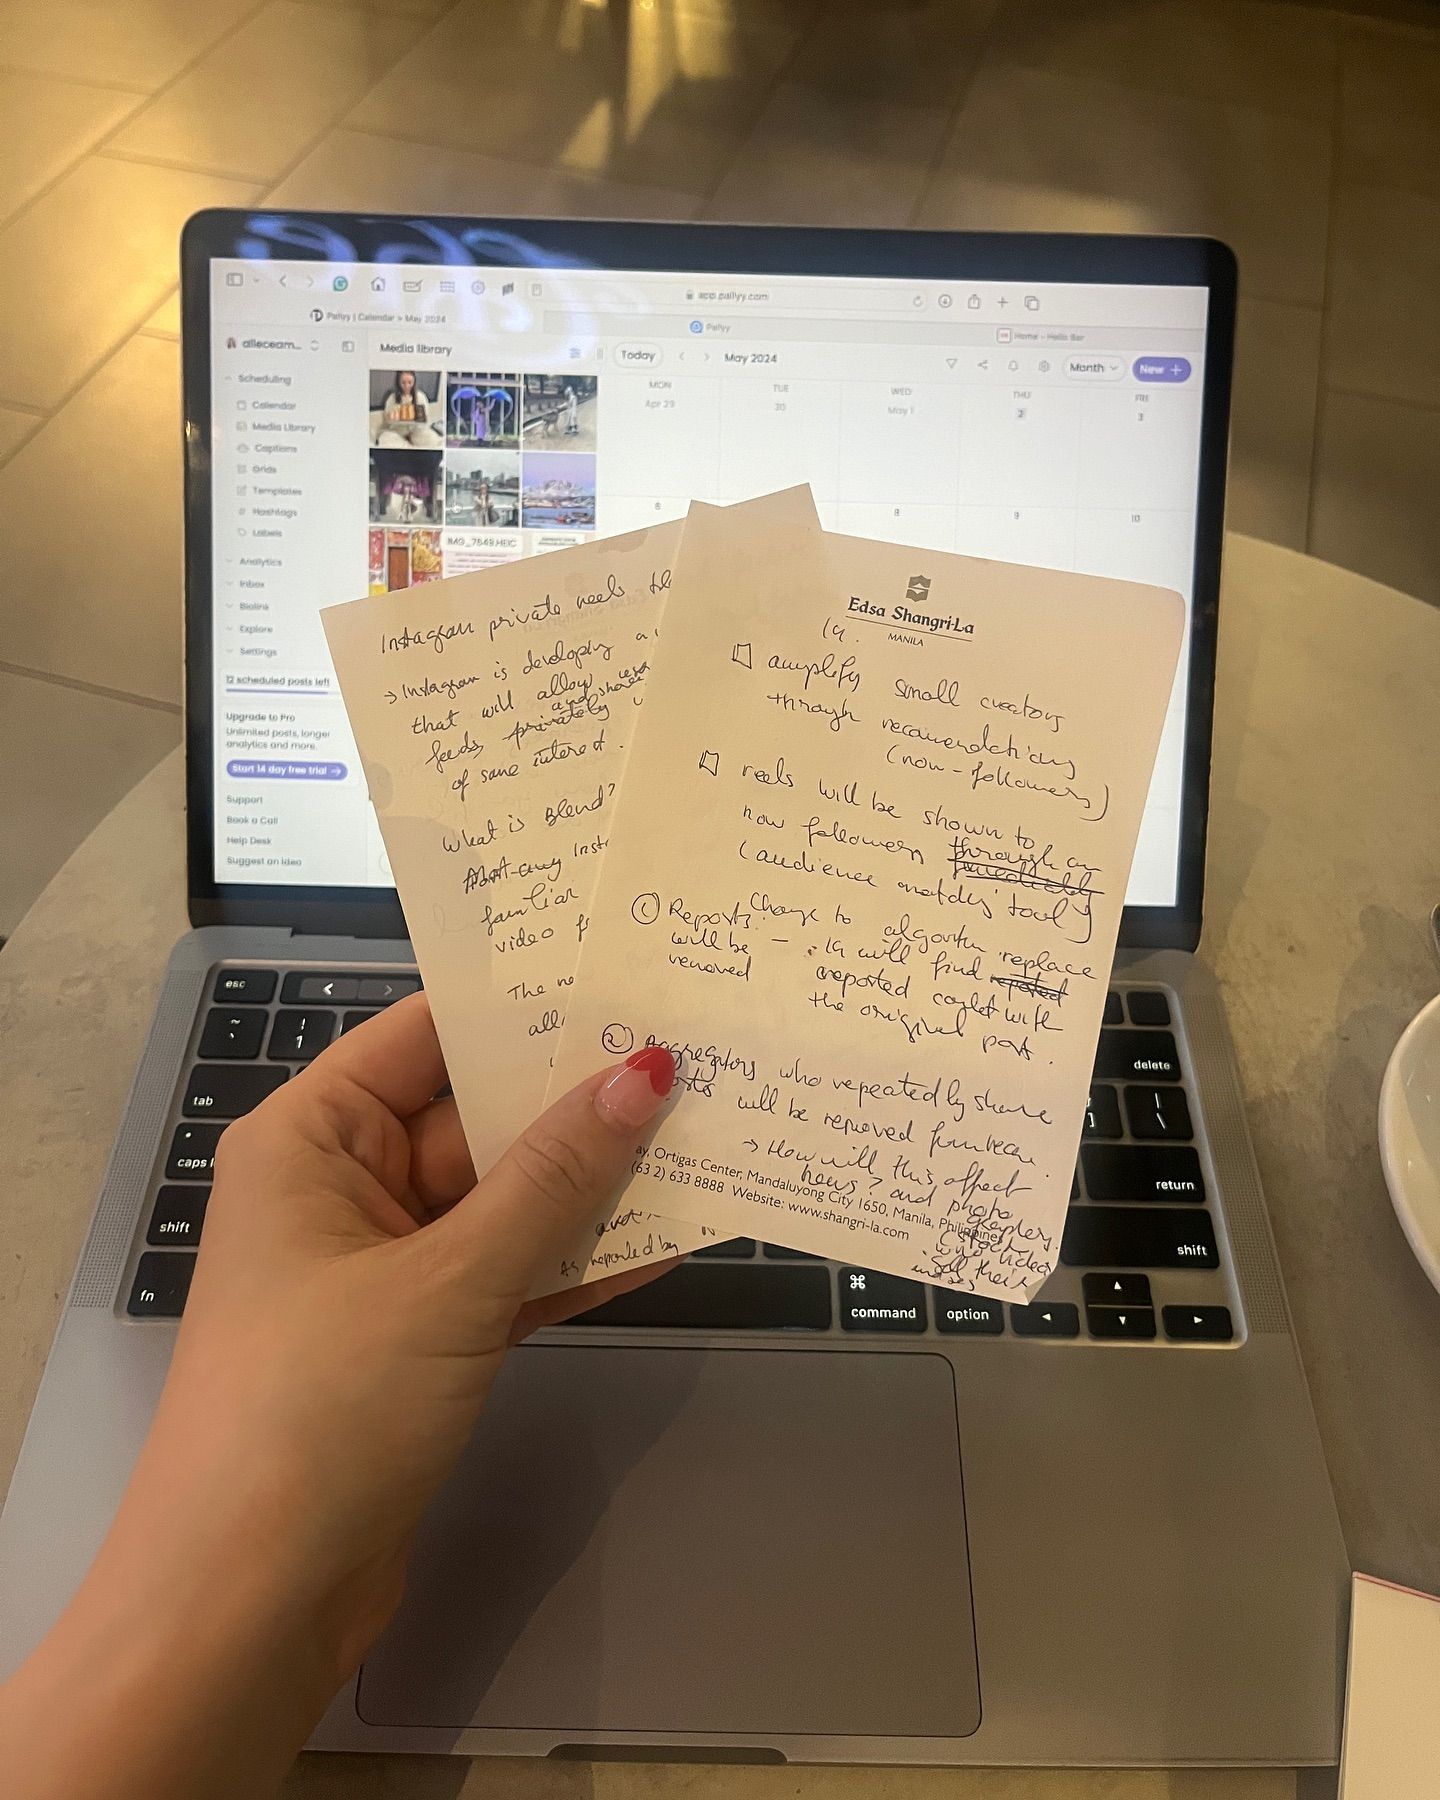 app.pallyy.com
Pallyy | Calendar > May 2024
Pallyy
Home – Hello Bar
alleceam...
Media library
Today
May 2024
Month
New +
Scheduling
Calendar
Media Library
Captions
Grids
Templates
Hashtags
Labels
Analytics
Inbox
Biolink
Explore
Settings
12 scheduled posts left
Upgrade to Pro
Unlimited posts, longer
analytics and more.
Start 14 day free trial →
Support
Book a Call
Help Desk
Suggest an idea
MON
TUE
WED
THU
FRI
Apr 29
30
May 1
2
3
6
8
9
10
IMG_7549.HEIC
Instagram private reels
→ Instagram is developing a
that will allow users
and share
feeds privately
of same interest.
What is Blend?
Inst
familiar
video f
The ne
all
As reported by
Edsa Shangri-La
MANILA
IG.
amplify small creators
through recommendations
(non-followers)
reels will be shown to
non followers through an
(audience matching tool)
change to algorithm
① Reports: replace
will be – : IG will find reposted
removed reposted content with
the original post.
② Aggregators who repeatedly share
posts will be removed from recom.
→ How will this affect
news? and photo
graphers.
(stock videos
who
sell their
images
ay, Ortigas Center, Mandaluyong City 1650, Manila, Philippines
(63 2) 633 8888 Website: www.shangri-la.com
esc
~
!
1
tab
caps l
shift
fn
delete
|
\
]
return
shift
⌘
command
option